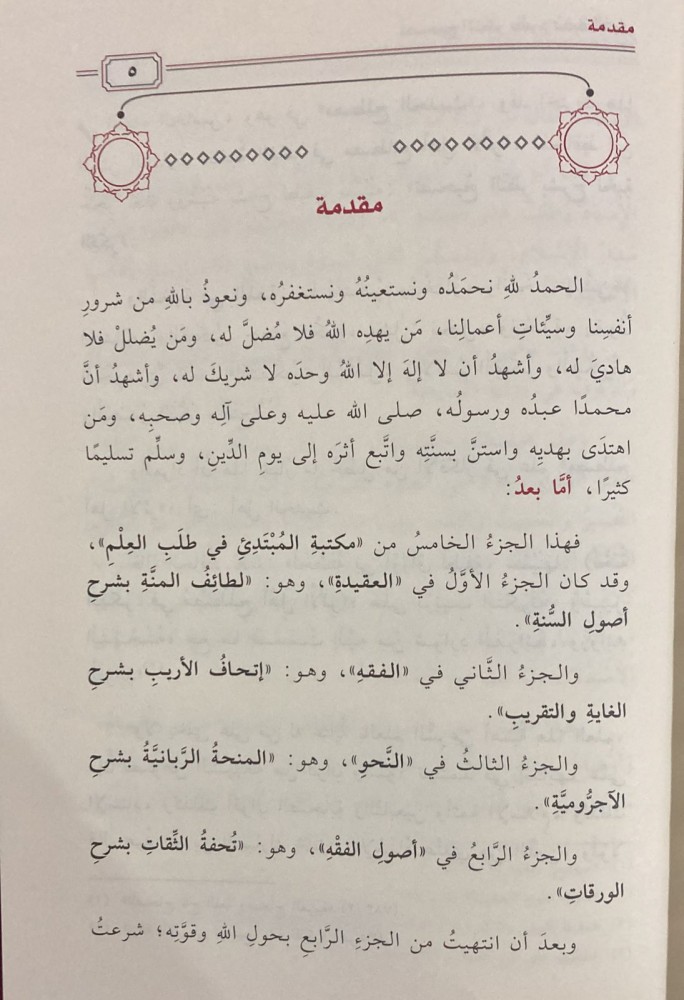 مقدمة
٥
مقدمة
الحمدُ للهِ نحمَدُه ونستعينُهُ ونستغفرُه، ونعوذُ باللهِ من شرورِ
أنفسِنا وسيِّئاتِ أعمالِنا، مَن يهدِه اللهُ فلا مُضلَّ له، ومَن يُضللْ فلا
هاديَ له، وأشهدُ أن لا إلهَ إلا اللهُ وحدَه لا شريكَ له، وأشهدُ أنَّ
محمدًا عبدُه ورسولُه، صلى الله عليه وعلى آلِه وصحبِه، ومَن
اهتدَى بهديِه واستنَّ بسنَّتِه واتَّبع أثرَه إلى يومِ الدِّينِ، وسلِّم تسليمًا
كثيرًا، أمَّا بعدُ:
فهذا الجزءُ الخامسُ من «مكتبةِ المُبْتَدِئِ في طلَبِ العِلْمِ»،
وقد كان الجزءُ الأوَّلُ في «العقيدةِ»، وهو: «لطائِفُ المنَّةِ بشرحِ
أصولِ السُّنةِ».
والجزءُ الثَّاني في «الفقهِ»، وهو: «إتحافُ الأريبِ بشرحِ
الغايةِ والتقريبِ».
والجزءُ الثالثُ في «النَّحوِ»، وهو: «المنحةُ الرَّبانيَّةُ بشرحِ
الآجرُّوميَّةِ».
والجزءُ الرَّابعُ في «أصولِ الفقْهِ»، وهو: «تُحفةُ الثِّقاتِ بشرحِ
الورقاتِ».
وبعدَ أن انتهيتُ من الجزءِ الرَّابعِ بحولِ اللهِ وقوَّتِه؛ شرعتُ